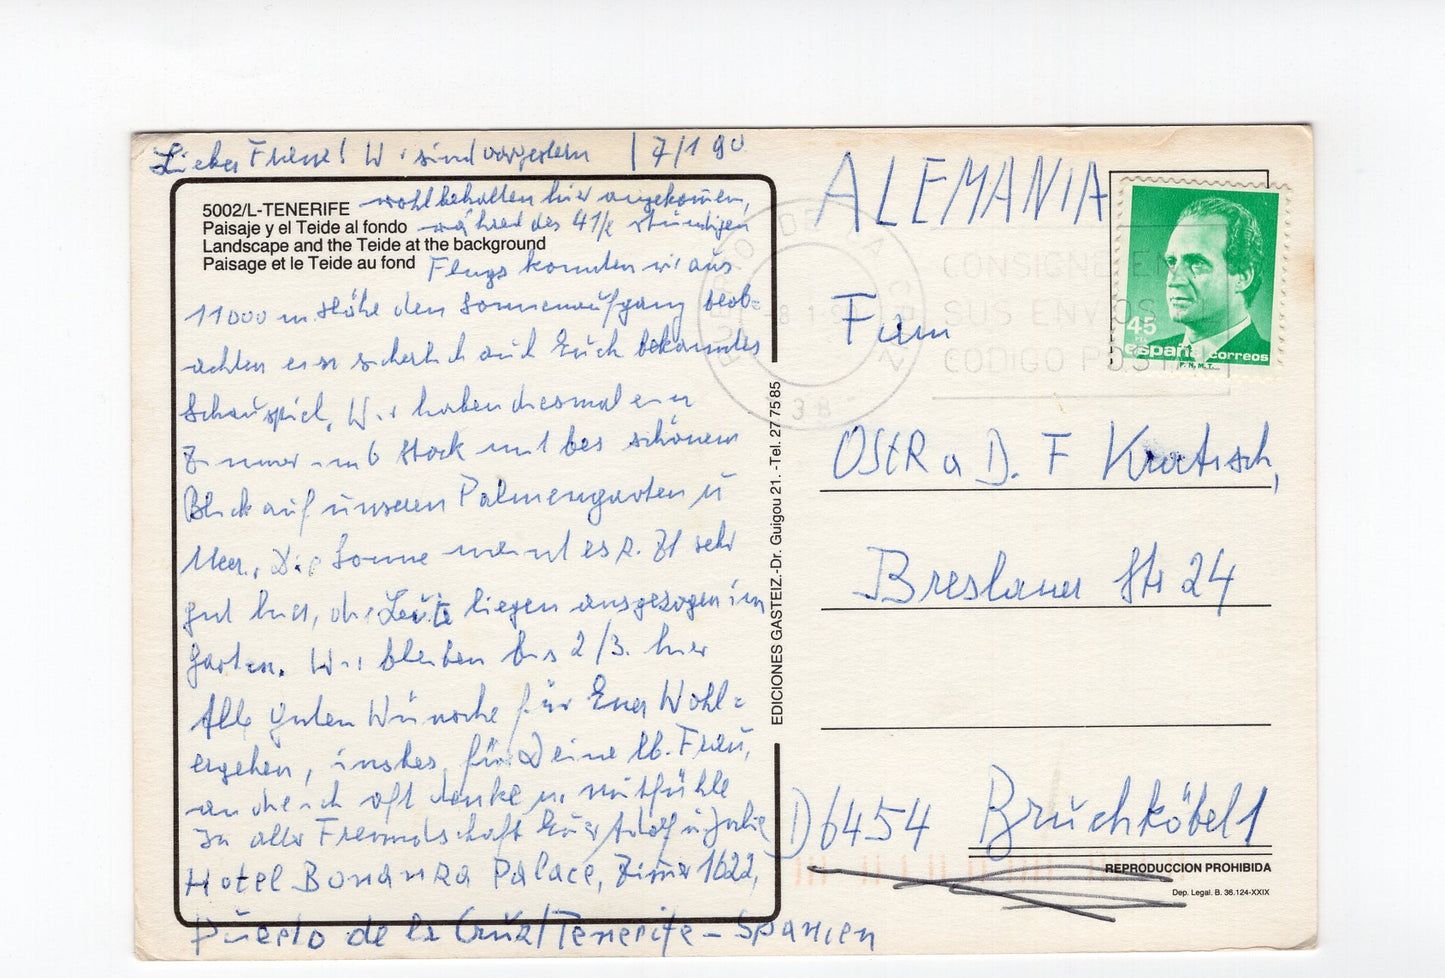 Lieber Franz! Wir sind vorgestern 7/1 90
wohlbehalten hier angekommen,
5002/L-TENERIFE
Paisaje y el Teide al fondo
Landscape and the Teide at the background
Paisage et le Teide au fond
während des 4½ stündigen
Flugs konnten wir aus
11000 m Höhe den Sonnenaufgang beob=
achten ein sicherlich auch Euch bekanntes
Schauspiel. Wir haben diesmal ein
Zimmer im 6 Stock mit bes schönem
Blick auf unseren Palmengarten u
Meer. Die Sonne meint es z. Zt sehr
gut hier, die Leute liegen ausgezogen im
Garten. Wir bleiben bis 2/3. hier
Alle guten Wünsche für Euer Wohl=
ergehen, insbes. für Deine lb. Frau,
an die ich oft denke u. mitfühle
In alter Freundschaft Euer Adolf u
Hotel Bonanza Palace, Zimmer 1622,
Puerto de la Cruz/Tenerife – Spanien
EDICIONES GASTEIZ.-Dr. Guigou 21. -Tel. 27 75 85
ALEMANIA
CONSIGNE EN
SUS ENVIOS
CODIGO POSTAL
-8 1
38
45
PTA
españa correos
F.N.M.T.
OStR a D. F Kratsch,
Breslauer Str 24
D 6454 Bruchköbel 1
REPRODUCCION PROHIBIDA
Dep. Legal. B. 36.124-XXIX